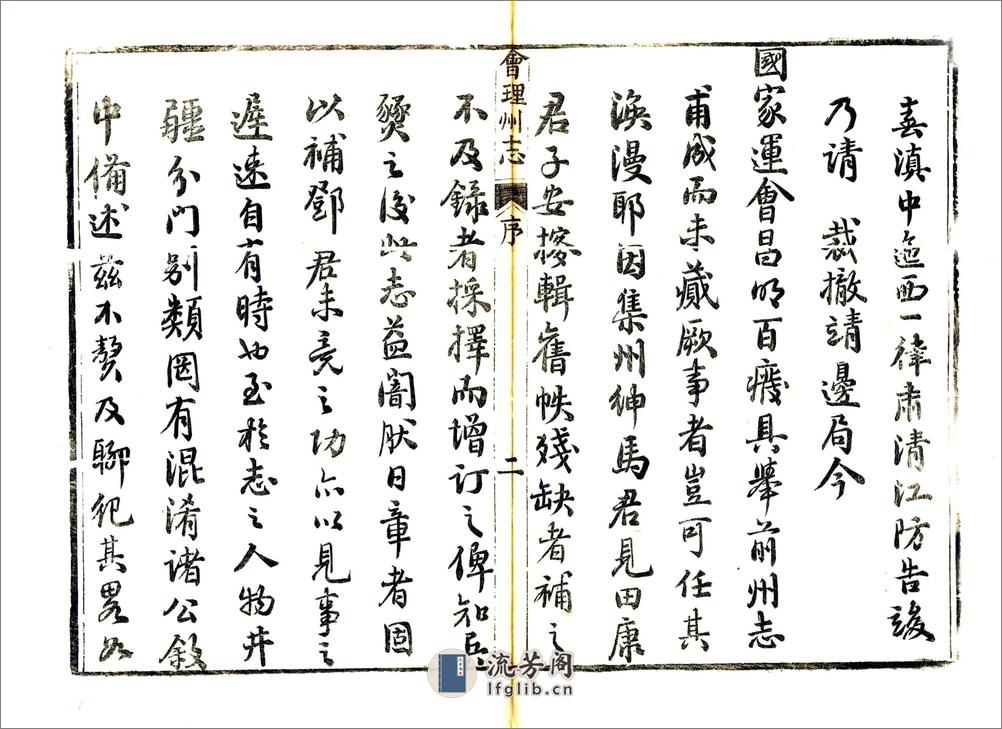 喜滇中迤西一律肅清江防告竣
乃請 裁撤靖邊局今
國家運會昌明百癈具舉前州志
甫成而未蕆厥事者豈可任其
渙漫耶因集州紳馬君見田康
君子安搜輯舊帙殘缺者補之
會理州志 序 二
不及錄者採擇而增訂之俾知兵
燹之後此志益闇肰日章者固
以補鄧君未竟之功亦以見事之
遲速自有時也至於志之人物井
疆分門別類罔有混淆諸公敘
中備述茲不贅及聊紀其畧如
流芳阁
lfglib.cn